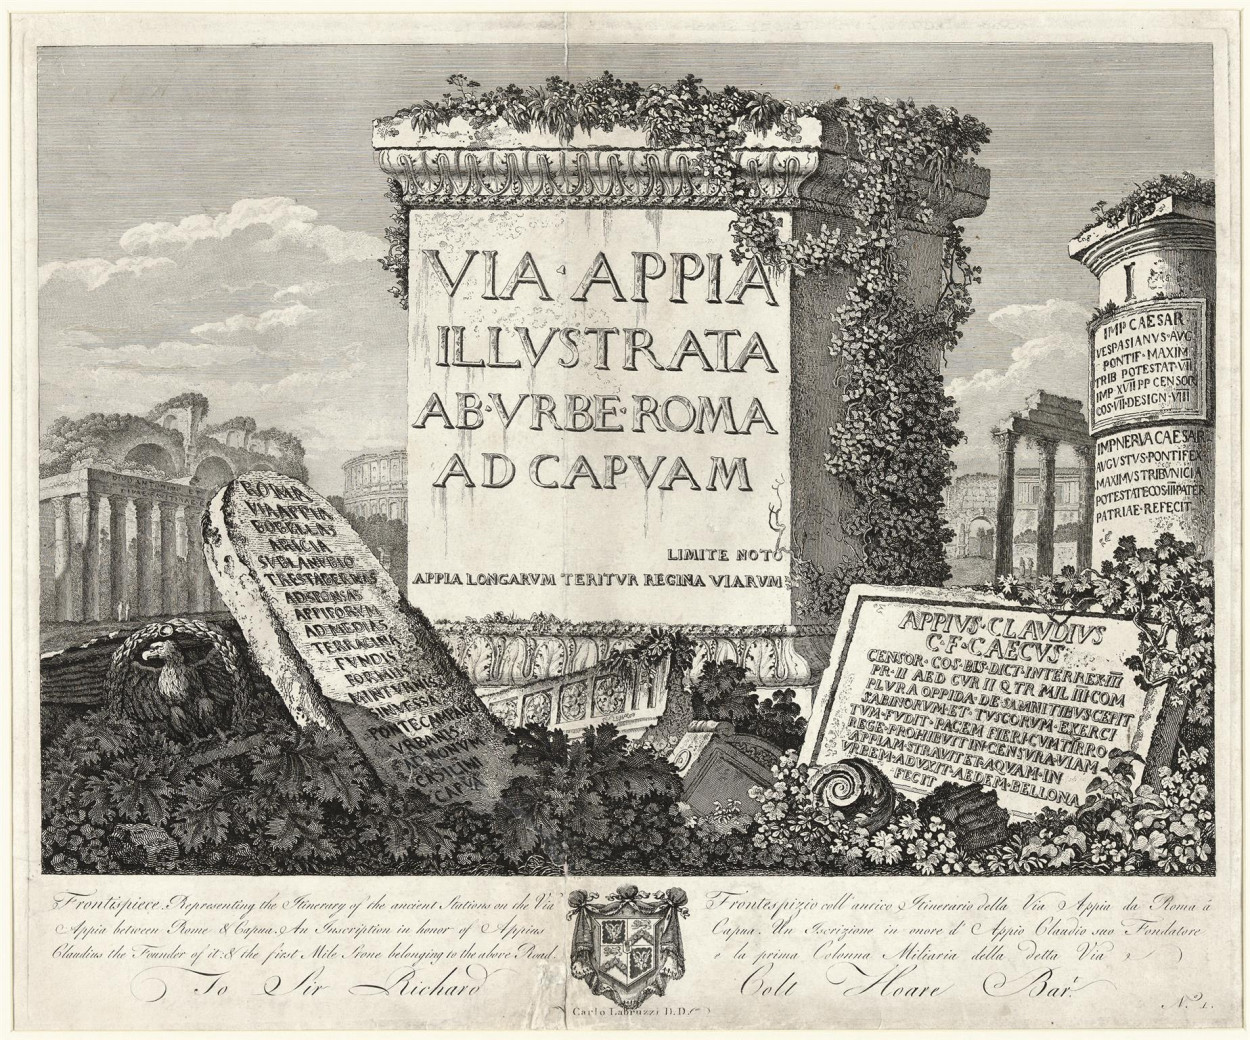 VIA·APPIA
ILLVSTRATA
AB·VRBE·ROMA
AD CAPVAM
LIMITE NOTO
APPIA LONGARVM TERITVR REGINA VIARVM
ROMA
VIA APPIA
BOBELLAS
ARICIA
SVBLANVBIO
TRES TABERNAS
AD SPONSAS
APPI FORVM
AD MEDIAS
TERRICINA
FVNDIS
FORMIS
MINTVRNIS
SINVESSA
PONTECAMPANO
VRBANIS
AD NONVM
CASILINI
CAPVA
I
IMP CAESAR
VESPASIANVS·AVG
PONTIF·MAXIM
TRIB POTESTAT·VII
IMP XVII PP CENSOR
COS·VII·DESIGN·VIII
IMP NERVA CAESAR
AVGVSTVS·PONTIFEX
MAXIMVS TRIBVNICIA
POTESTATE COS III PATER
PATRIAE·REFECIT
APPIVS·CLAVDIVS
C·F·CAECVS·
CENSOR·COS·BIS·DICT·INTERREX·III
PR·II AED CVR II Q TR MIL III·COM
PLVRA OPPIDA·DE SAMNITIBVS CEPIT
SABINORVM·ET·TVSCORVM·EXERCI
TVM·FVDIT·PACEM FIERI·CVM PIRRO
REGE·PROHIBVIT IN·CENSVRA·VIAM
APPIAM·STRAVIT ET AQVAM·IN
VRBEM·ADVXIT·AEDEM·BELLONA
FECIT
Frontispiece Representing the Itinerary of the ancient Stations on the Via
Appia between Rome & Capua. An Inscription in honor of Appius
Claudius the Founder of it: & the first Mile Stone belonging to the above Road.
To Sir Richard
Frontespizio coll' antico Itinerario della Via Appia da Roma à
Capua. Un Iscrizione in onore d' Appio Claudio suo Fondatore
e la prima Colonna Miliaria della detta Via
Colt Hoare Bar.t
Carlo Labruzzi D.D.
N.o 1.